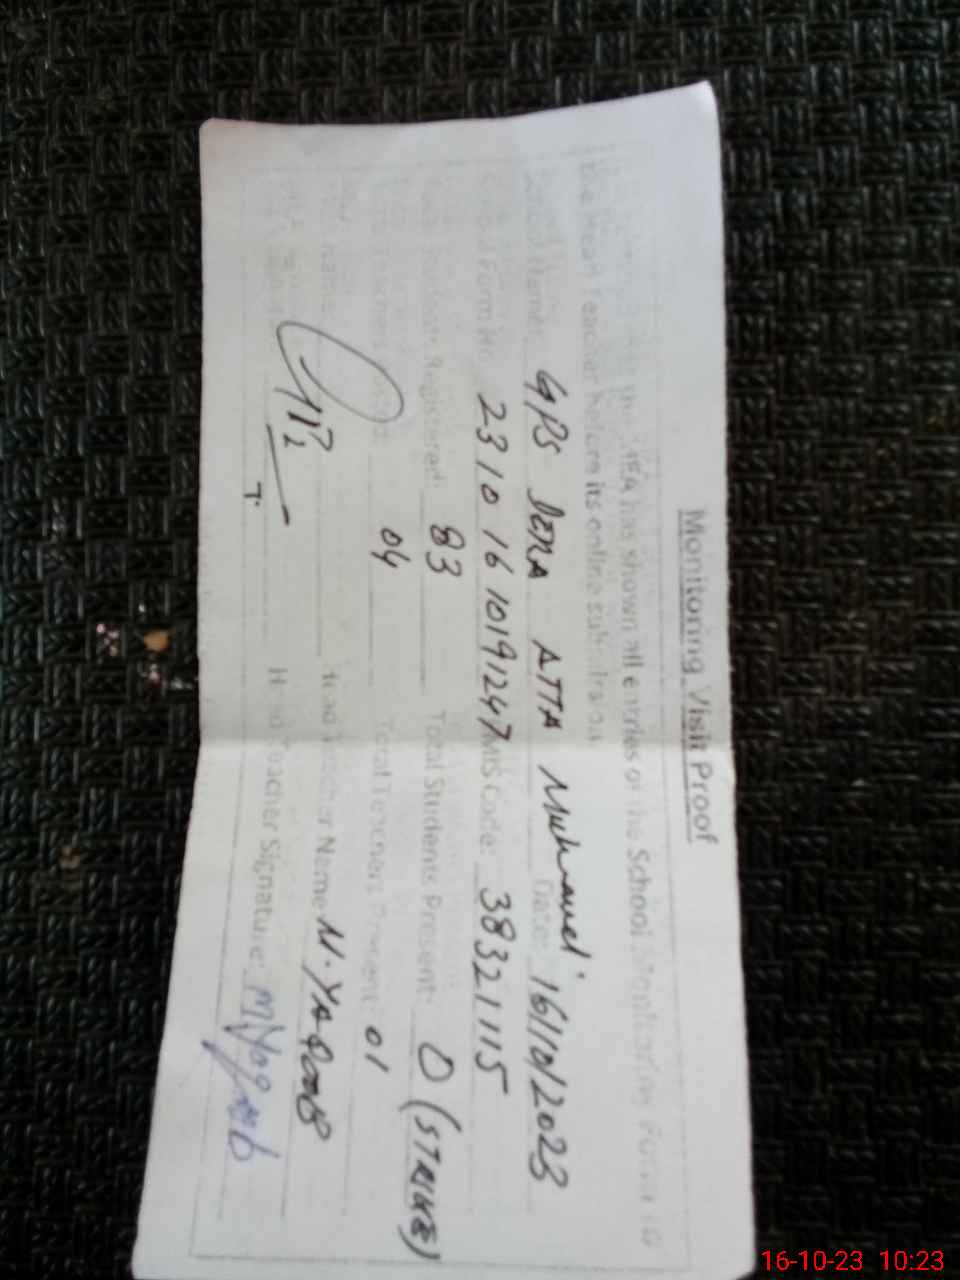 Monitoring Visit Proof
the MEA has shown all entries of the School Monitoring Form to
the Head Teacher before its online submission
School Name: GPS DERA ATTA Date: 16/10/2023
School Form Nr. 23 10 16 10191247 MIS Code: 38321115
Students Registered: 83 Total Students Present: 0 (STRIKE)
Teachers 04 Total Teachers Present: 01
Name: Head Teacher Name M. YAQOOB
Head Teacher Signature: M Yaqoob
16-10-23 10:23